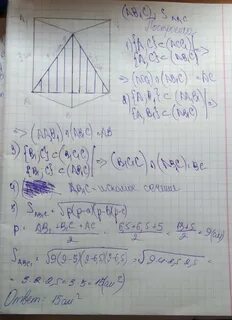 (AB₁C), S AB₁C
Построение
1) {A,C} ⊂ (ACC₁) ⇒
{A,C} ⊂ (AB₁C)
⇒ (ACC₁) ∩ (AB₁C) = AC
2) {A,B₁} ⊂ (AA₁B₁)
{A,B₁} ⊂ (AB₁C)
⇒ (AA₁B₁) ∩ (AB₁C) = AB₁
3) {B₁,C} ⊂ (B₁C₁C)
{B₁,C} ⊂ (AB₁C) ⇒ (B₁C₁C) ∩ (AB₁C) = B₁C
4) AB₁C - искомое сечение
5) S AB₁C = √p(p-a)(p-b)(p-c)
p = AB₁ + B₁C + AC / 2 = 6,5+6,5+5 / 2 = 13+5 / 2 = 9 (см)
S AB₁C = √9(9-5)(9-6,5)(9-6,5) = √9·4·2,5·2,5 =
= 3·2·2,5 = 3·5 = 15 (см²)
Ответ: 15 см²